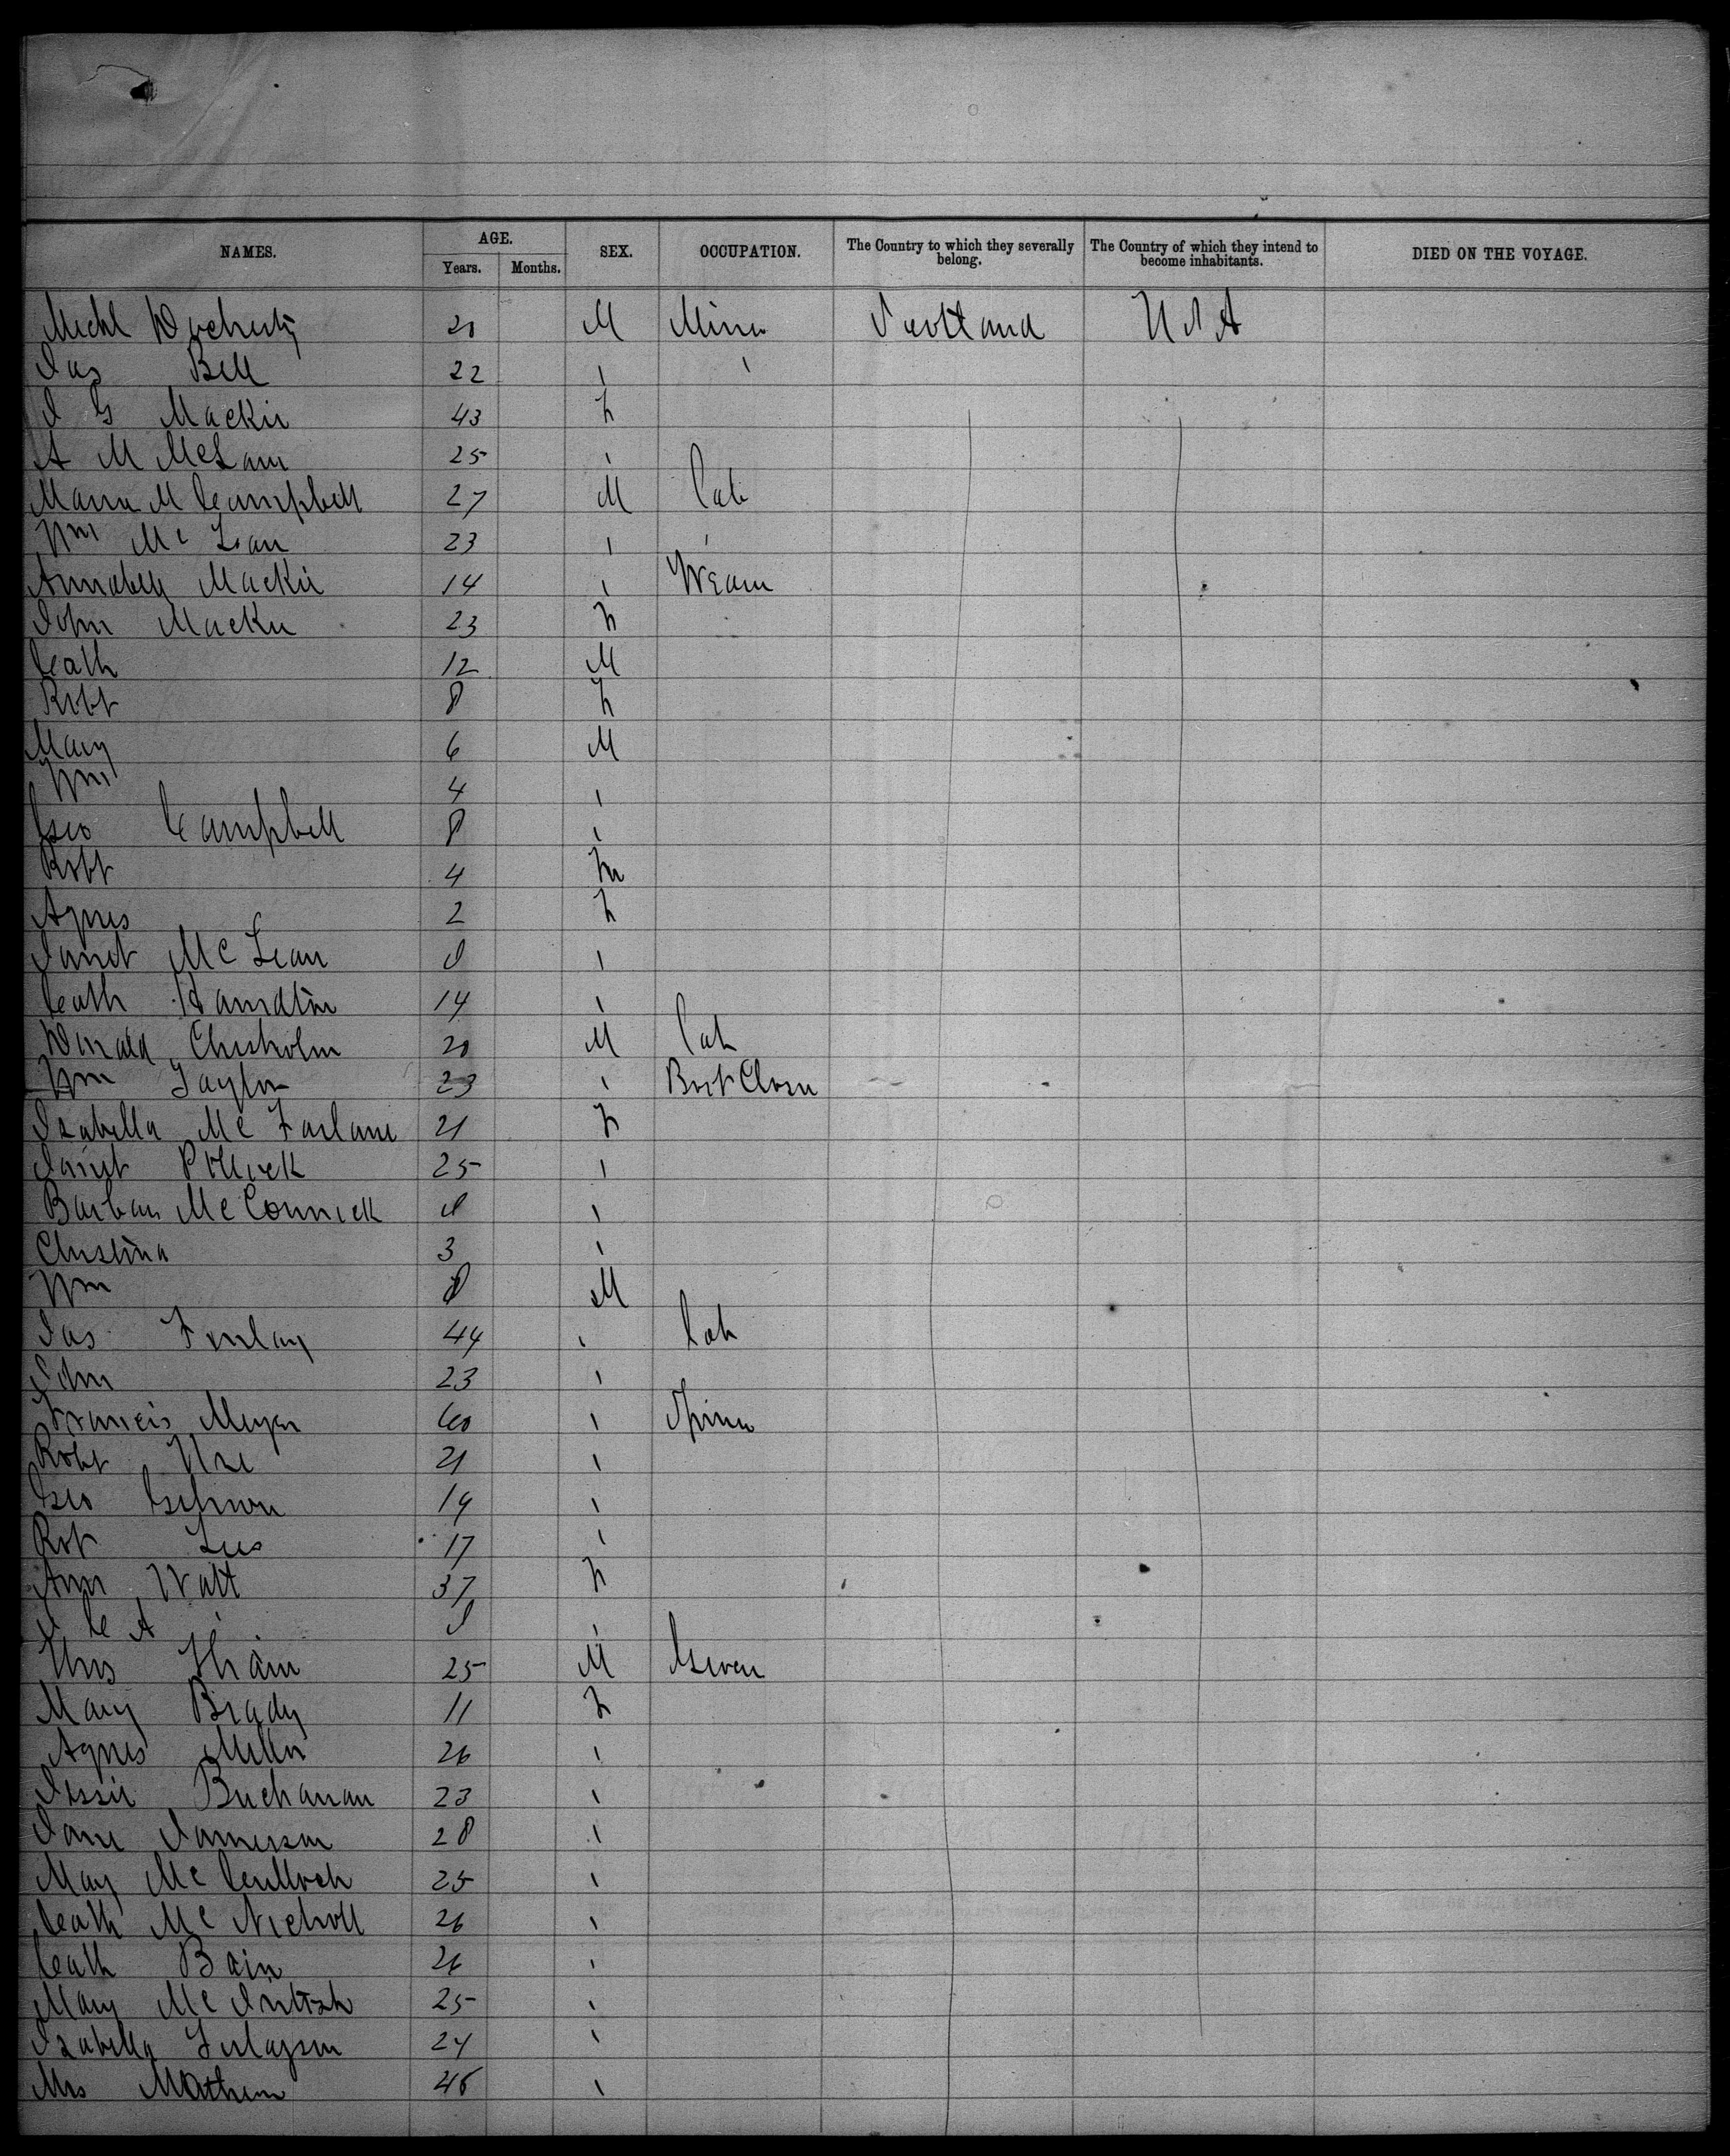 NAMES. AGE. SEX. OCCUPATION. The Country to which they severally belong. The Country of which they intend to become inhabitants. DIED ON THE VOYAGE.
Years. Months.
Michl Docherty 20 M Miner Scotland U S A
Jas Bell 22 "
J G Mackie 43 F
A M McLean 25 "
Maria M Campbell 27 M Lab
Wm McLean 23 " "
Annabella Mackie 14 "
John Mackie 23 F
Cath 12 M
Robt 8 F
Mary 6 M
Wm 4 "
Geo Campbell 8 "
Robt 4 M
Agnes 2 F
Janet McLean "
Cath Hamilton 14 "
Donald Chisholm 20 M Lab
Wm Taylor 23 "
Isabella McFarlane 21 F
Janet Pollock 25 "
Barbara McCormick "
Christina 3 "
Wm 8 M
Jas Finlay 44 " Lab
John 23 "
Francis Meyer 60 "
Robt Ure 21 "
Geo 19 "
Rot Lees 17 "
Ann Watt 37 F
"
Thos 25 M
Mary Brady 11 F
Agnes Miller 26 "
Jessie Buchanan 23 "
Jane Jameson 28 "
May McCulloch 25 "
Cath McNicholl 26 "
Cath Bain 26 "
Mary McIntosh 25 "
Isabella Finlayson 24 "
Mrs 45 "